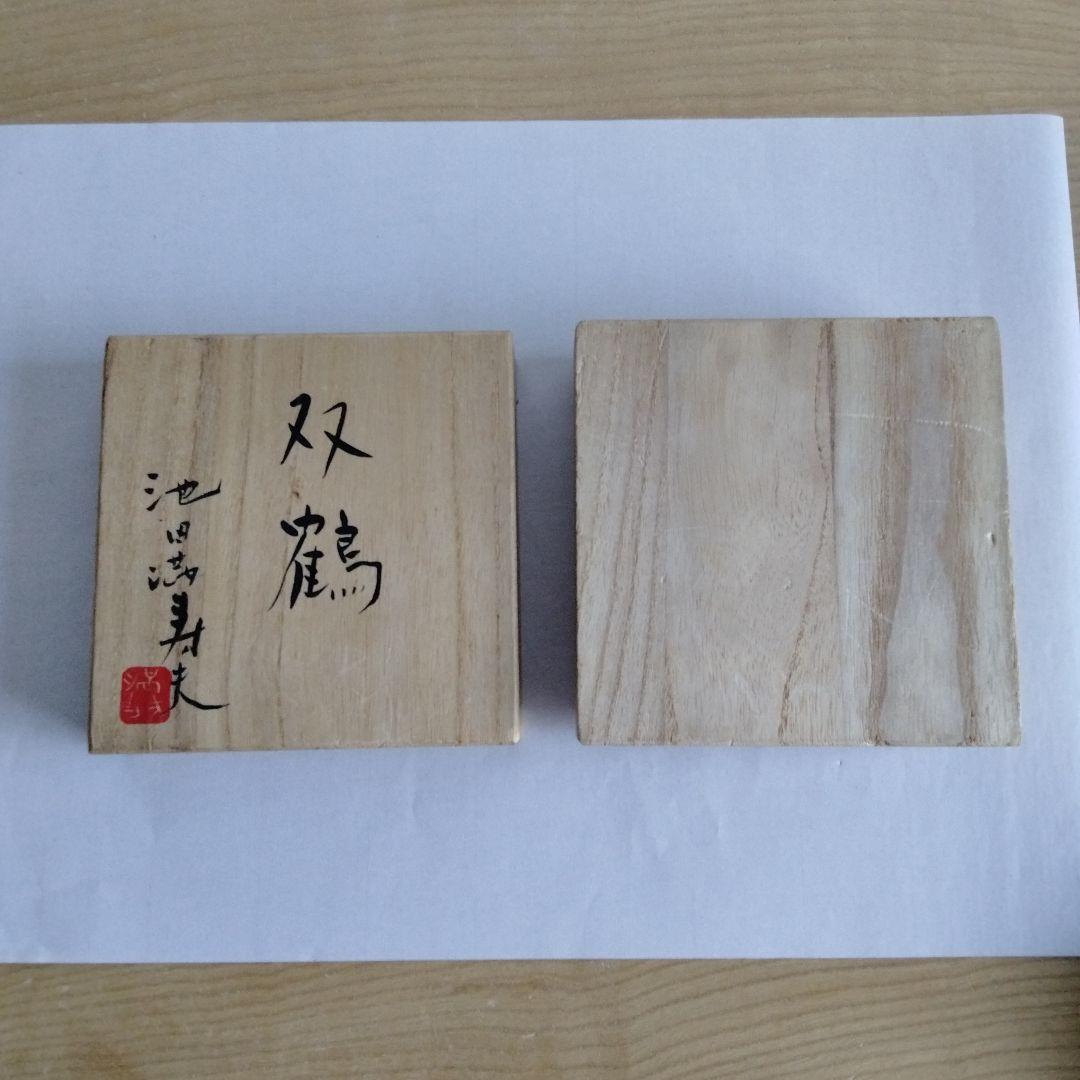 双鶴
池田満寿夫